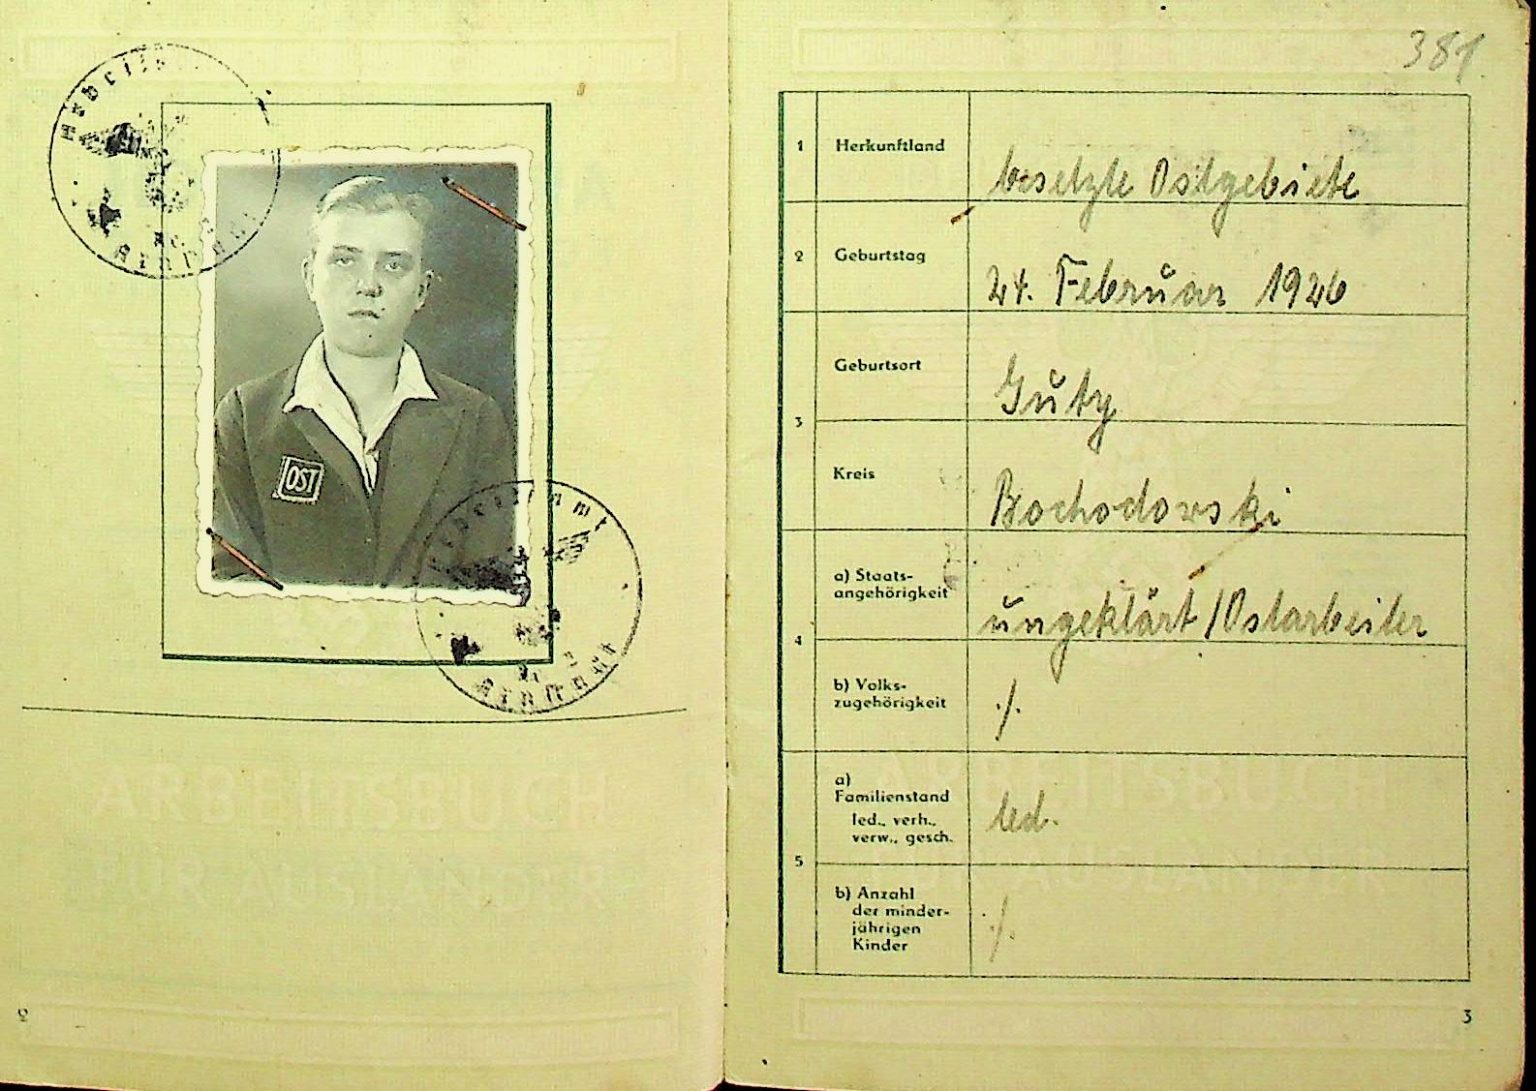 Arbeitsamt
OST
Arbeitsamt
ARBEITSBUCH
FÜR AUSLÄNDER
2
381
1 Herkunftland besetzte Ostgebiete
2 Geburtstag 24. Februar 1926
3 Geburtsort Guty
Kreis Bochodowski
4 a) Staats-
angehörigkeit ungeklärt/Ostarbeiter
b) Volks-
zugehörigkeit ./.
5 a)
Familienstand led.
led., verh.,
verw., gesch.
b) Anzahl
der minder-
jährigen ./.
Kinder
ARBEITSBUCH
FÜR AUSLÄNDER
3